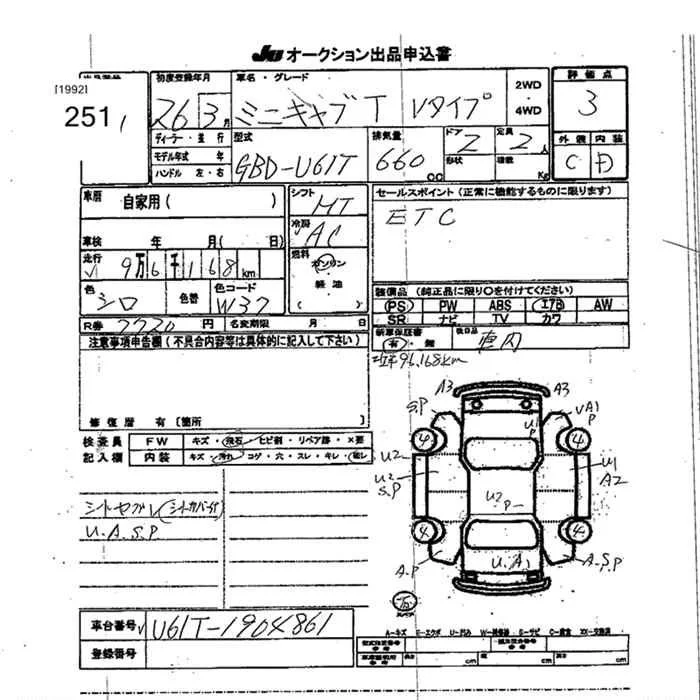 JU オークション出品申込書
[1992]
251,
初度登録年月
26 3月
車名・グレード
ミニキャブT Vタイプ
2WD・4WD
評価点
3
外装 内装
C D
ディーラー・並行
モデル年式 年
ハンドル 左・右
型式
GBD-U61T
排気量
660 CC
ドア 2
形状
定員 2人
積載 Kg
車歴 自家用( )
シフト MT
冷房 AC
車検 年 月( 日)
走行 9万6千168km
燃料 ガソリン・軽油
( )
色 シロ
色替
色コード W37
R券 7720円
名変期限 月 日
セールスポイント(正常に機能するものに限ります)
ETC
装備品(純正品に限り○を付けてください)
PS PW ABS エアB AW
SR ナビ TV カワ
新車保証書 有・無
後日品 車内
96,168km
注意事項申告欄(不具合内容等は具体的に記入して下さい)
修復歴 有〔箇所 〕
検査員記入欄
FW キズ・飛石・ヒビ割・リペア跡・×要
内装 キズ・汚れ・コゲ・穴・スレ・キレ・
シートヤブレ(シートカバー付)
U.A.S.P
A3 A3
S.P UA1 P
4 4
U1 P
U2 U1
U2 S.P A2
U2 P
4 4
A.P U.A1 A.S.P
スペア
車台番号 U61T-1904861
登録番号
A=キズ E=エクボ U=凹み W=補修跡 S=サビ C=腐食 XX=交換済
長さ cm 幅 cm 高さ cm